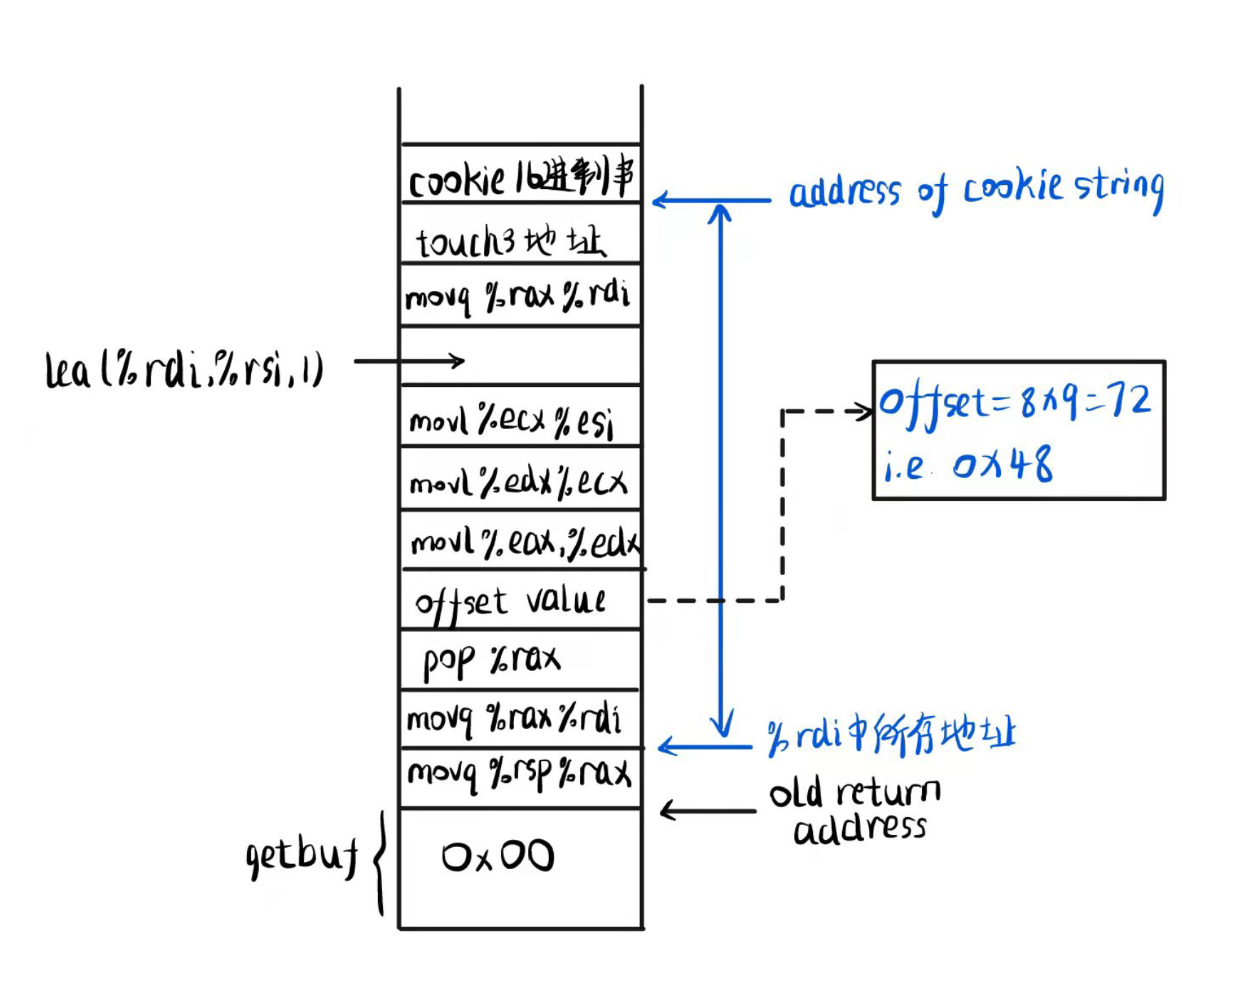 cookie 16进制串
address of cookie string
touch3地址
movq %rax %rdi
lea(%rdi,%rsi,1)
movl %ecx %esi
offset=8×9=72
i.e. 0x48
movl %edx %ecx
movl %eax,%edx
offset value
pop %rax
movq %rax %rdi
%rdi中所存地址
movq %rsp %rax
old return
address
getbuf
0x00